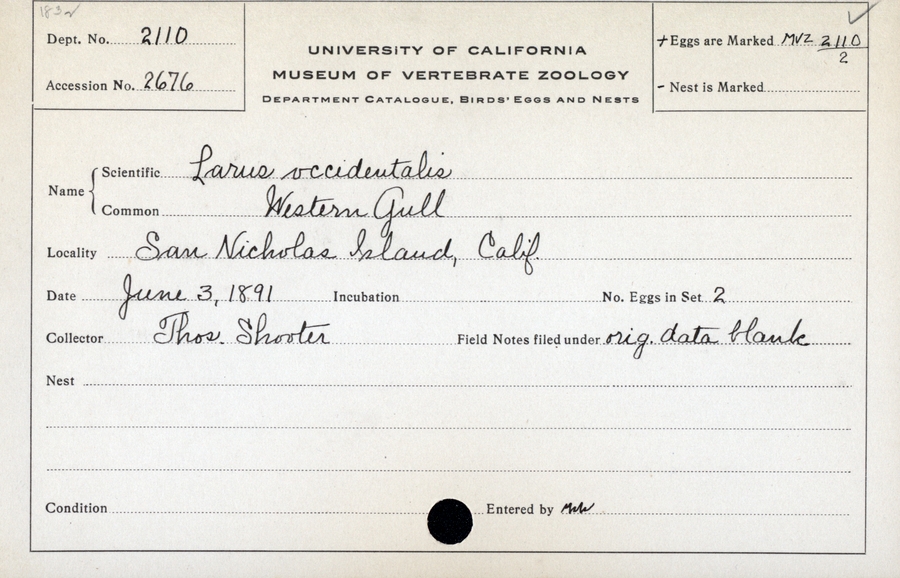 1832
Dept. No. 2110
Accession No. 2676
UNIVERSITY OF CALIFORNIA
MUSEUM OF VERTEBRATE ZOOLOGY
DEPARTMENT CATALOGUE, BIRDS' EGGS AND NESTS
+ Eggs are Marked MVZ 2110
2
- Nest is Marked
Name
Scientific Larus occidentalis
Common Western Gull
Locality San Nicholas Island, Calif.
Date June 3, 1891 Incubation No. Eggs in Set 2
Collector Thos. Shooter Field Notes filed under orig. data blank
Nest
Condition Entered by